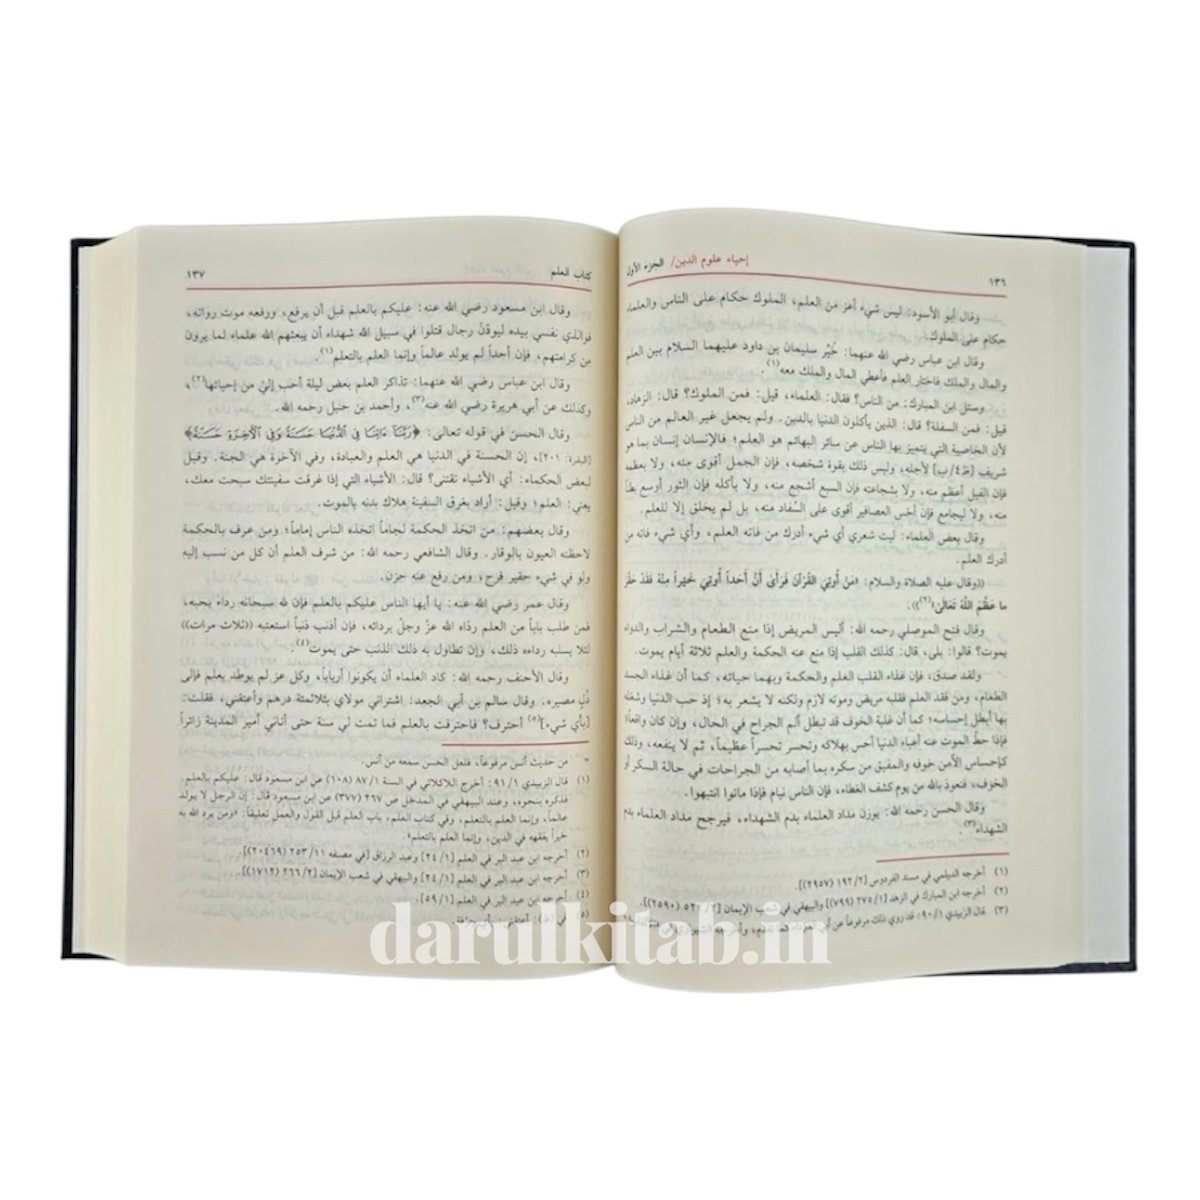 ١٣٦
إحياء علوم الدين/ الجزء الأول
وقال أبو الأسود: ليس شيء أعز من العلم، الملوك حكام على الناس والعلماء
حكام على الملوك.
وقال ابن عباس رضي الله عنهما: خُيّر سليمان بن داود عليهما السلام بين العلم
والمال والملك فاختار العلم فأعطي المال والملك معه(١).
وسئل ابن المبارك: من الناس؟ فقال: العلماء، قيل: فمن الملوك؟ قال: الزهاد،
قيل: فمن السفلة؟ قال: الذين يأكلون الدنيا بالدين. ولم يجعل غير العالم من الناس
لأن الخاصية التي يتميز بها الناس عن سائر البهائم هو العلم؛ فالإنسان إنسان بما هو
شريف [ظ٤/ب] لأجله، وليس ذلك بقوة شخصه، فإن الجمل أقوى منه، ولا بعظمه
فإن الفيل أعظم منه، ولا بشجاعته فإن السبع أشجع منه، ولا بأكله فإن الثور أوسع بطناً
منه، ولا ليجامع فإن أخس العصافير أقوى على السِّفاد منه، بل لم يخلق إلا للعلم.
وقال بعض العلماء: ليت شعري أي شيء أدرك من فاته العلم، وأي شيء فاته من
أدرك العلم.
((وقال عليه الصلاة والسلام: «مَنْ أُوتِيَ القُرْآنَ فَرَأَىٰ أَنَّ أَحَداً أُوتِيَ خَيْراً مِنْهُ فَقَدْ حَقَّرَ
ما عَظَّمَ اللَّهُ تَعَالَىٰ»(٢))).
وقال فتح الموصلي رحمه الله: أليس المريض إذا منع الطعام والشراب والدواء
يموت؟ قالوا: بلى، قال: كذلك القلب إذا منع عنه الحكمة والعلم ثلاثة أيام يموت.
ولقد صدق، فإن غذاء القلب العلم والحكمة وبهما حياته، كما أن غذاء الجسد
الطعام، ومن فقد العلم فقلبه مريض وموته لازم ولكنه لا يشعر به؛ إذ حب الدنيا وشغله
بها أبطل إحساسه؛ كما أن غلبة الخوف قد تبطل ألم الجراح في الحال، وإن كان واقعاً؛
فإذا حطَّ الموت عنه أعباء الدنيا أحس بهلاكه وتحسر تحسراً عظيماً، ثم لا ينفعه، وذلك
كإحساس الآمن خوفه والمفيق من سكره بما أصابه من الجراحات في حالة السكر أو
الخوف، فنعوذ بالله من يوم كشف الغطاء، فإن الناس نيام فإذا ماتوا انتبهوا.
وقال الحسن رحمه الله: يوزن مداد العلماء بدم الشهداء، فيرجح مداد العلماء بدم
الشهداء(٣).
(١) أخرجه الديلمي في مسند الفردوس [٢/ ١٩٢ (٢٩٥٧)].
(٢) أخرجه ابن المبارك في الزهد [١/ ٢٧٥ (٧٩٩)] والبيهقي في شعب الإيمان [٢/ (٢٥٩٠)].
(٣) قال الزبيدي ١/ ٩٠: قد روي ذلك مرفوعاً عن
كتاب العلم
١٣٧
وقال ابن مسعود رضي الله عنه: عليكم بالعلم قبل أن يرفع، ورفعه موت رواته،
فوالذي نفسي بيده ليودَّنَّ رجال قتلوا في سبيل الله شهداء أن يبعثهم الله علماء لما يرون
من كرامتهم، فإن أحداً لم يولد عالماً وإنما العلم بالتعلم(١).
وقال ابن عباس رضي الله عنهما: تذاكر العلم بعض ليلة أحب إليّ من إحيائها(٢)،
وكذلك عن أبي هريرة رضي الله عنه(٣)، وأحمد بن حنبل رحمه الله.
وقال الحسن في قوله تعالى: ﴿رَبَّنَآ ءَاتِنَا فِى ٱلدُّنْيَا حَسَنَةً وَفِى ٱلْـَٔاخِرَةِ حَسَنَةً﴾
[البقرة: ٢٠١]، إن الحسنة في الدنيا هي العلم والعبادة، وفي الآخرة هي الجنة. وقيل
لبعض الحكماء: أي الأشياء تقتنى؟ قال: الأشياء التي إذا غرقت سفينتك سبحت معك،
يعني: العلم؛ وقيل: أراد بغرق السفينة هلاك بدنه بالموت.
وقال بعضهم: من اتخذ الحكمة لجاماً اتخذه الناس إماماً؛ ومن عرف بالحكمة
لاحظته العيون بالوقار. وقال الشافعي رحمه الله: من شرف العلم أن كل من نسب إليه
ولو في شيء حقير فرح، ومن رفع عنه حزن.
وقال عمر رضي الله عنه: يا أيها الناس عليكم بالعلم فإن لله سبحانه رداء يحبه،
فمن طلب باباً من العلم ردَّاه الله عزّ وجلّ بردائه، فإن أذنب ذنباً استعتبه ((ثلاث مرات))
لئلا يسلبه رداءه ذلك، وإن تطاول به ذلك الذنب حتى يموت(٤).
وقال الأحنف رحمه الله: كاد العلماء أن يكونوا أرباباً، وكل عز لم يوطد بعلم فإلى
ذلٍ مصيره. وقال سالم بن أبي الجعد: اشتراني مولاي بثلاثمئة درهم وأعتقني، فقلت:
[بأي شيء](٥) أحترف؟ فاحترفت بالعلم فما تمت لي سنة حتى أتاني أمير المدينة زائراً
= من حديث أنس مرفوعاً، فلعل الحسن سمعه من أنس.
(١) قال الزبيدي ١/ ٩١: أخرج اللالكائي في السنة ١/ ٨٧ (١٠٨) عن ابن مسعود قال: عليكم بالعلم.
فذكره بنحوه، وعند البيهقي في المدخل ص ٢٦٧ (٣٧٧) عن ابن مسعود قال: إن الرجل لا يولد
عالماً، وإنما العلم بالتعلم، وفي كتاب العلم، باب العلم قبل القول والعمل تعليقاً: «ومن يرد الله به
خيراً يفقهه في الدين، وإنما العلم بالتعلم».
(٢) أخرجه ابن عبد البر في العلم [١/ ٢٤] وعبد الرزاق [في مصنفه ١١/ ٢٥٣ (٢٠٤٦٩)].
(٣) أخرجه ابن عبد البر في العلم [١/ ٢٤] والبيهقي في شعب الإيمان [٢/ ٢٦٦ (١٧١٢)].
(٤) أخرجه ابن عبد البر في العلم [١/ ٥٩].
(٥) أعتقني؛ بأي
darulkitab.in